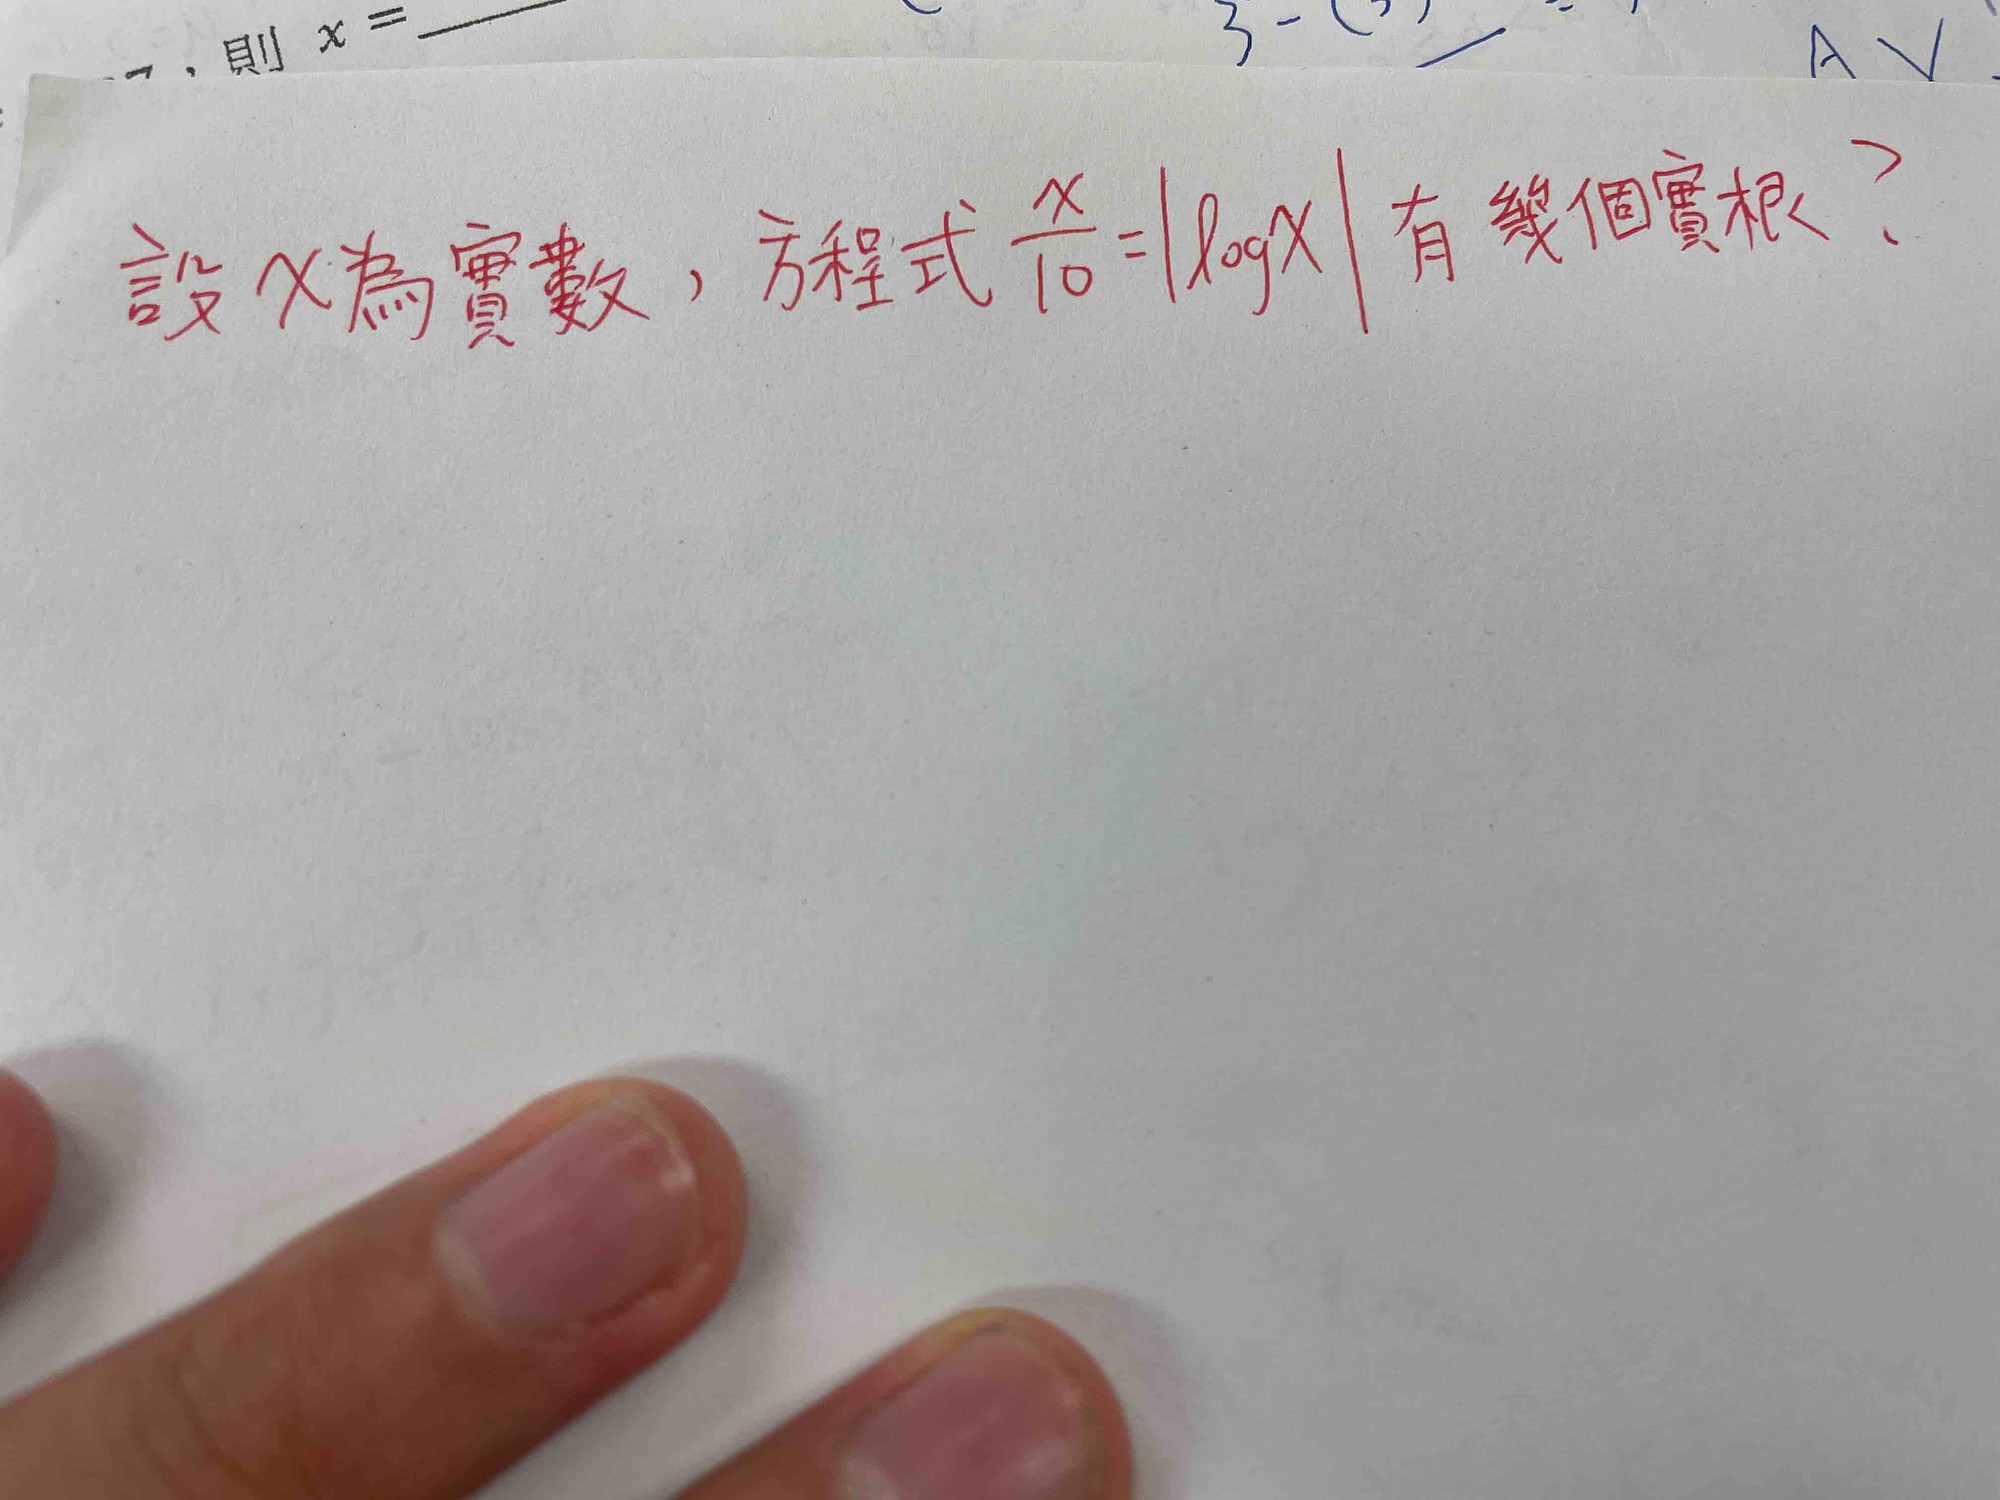 則 x =
A V
設 x 為實數，方程式 x/10 = |log x| 有幾個實根？